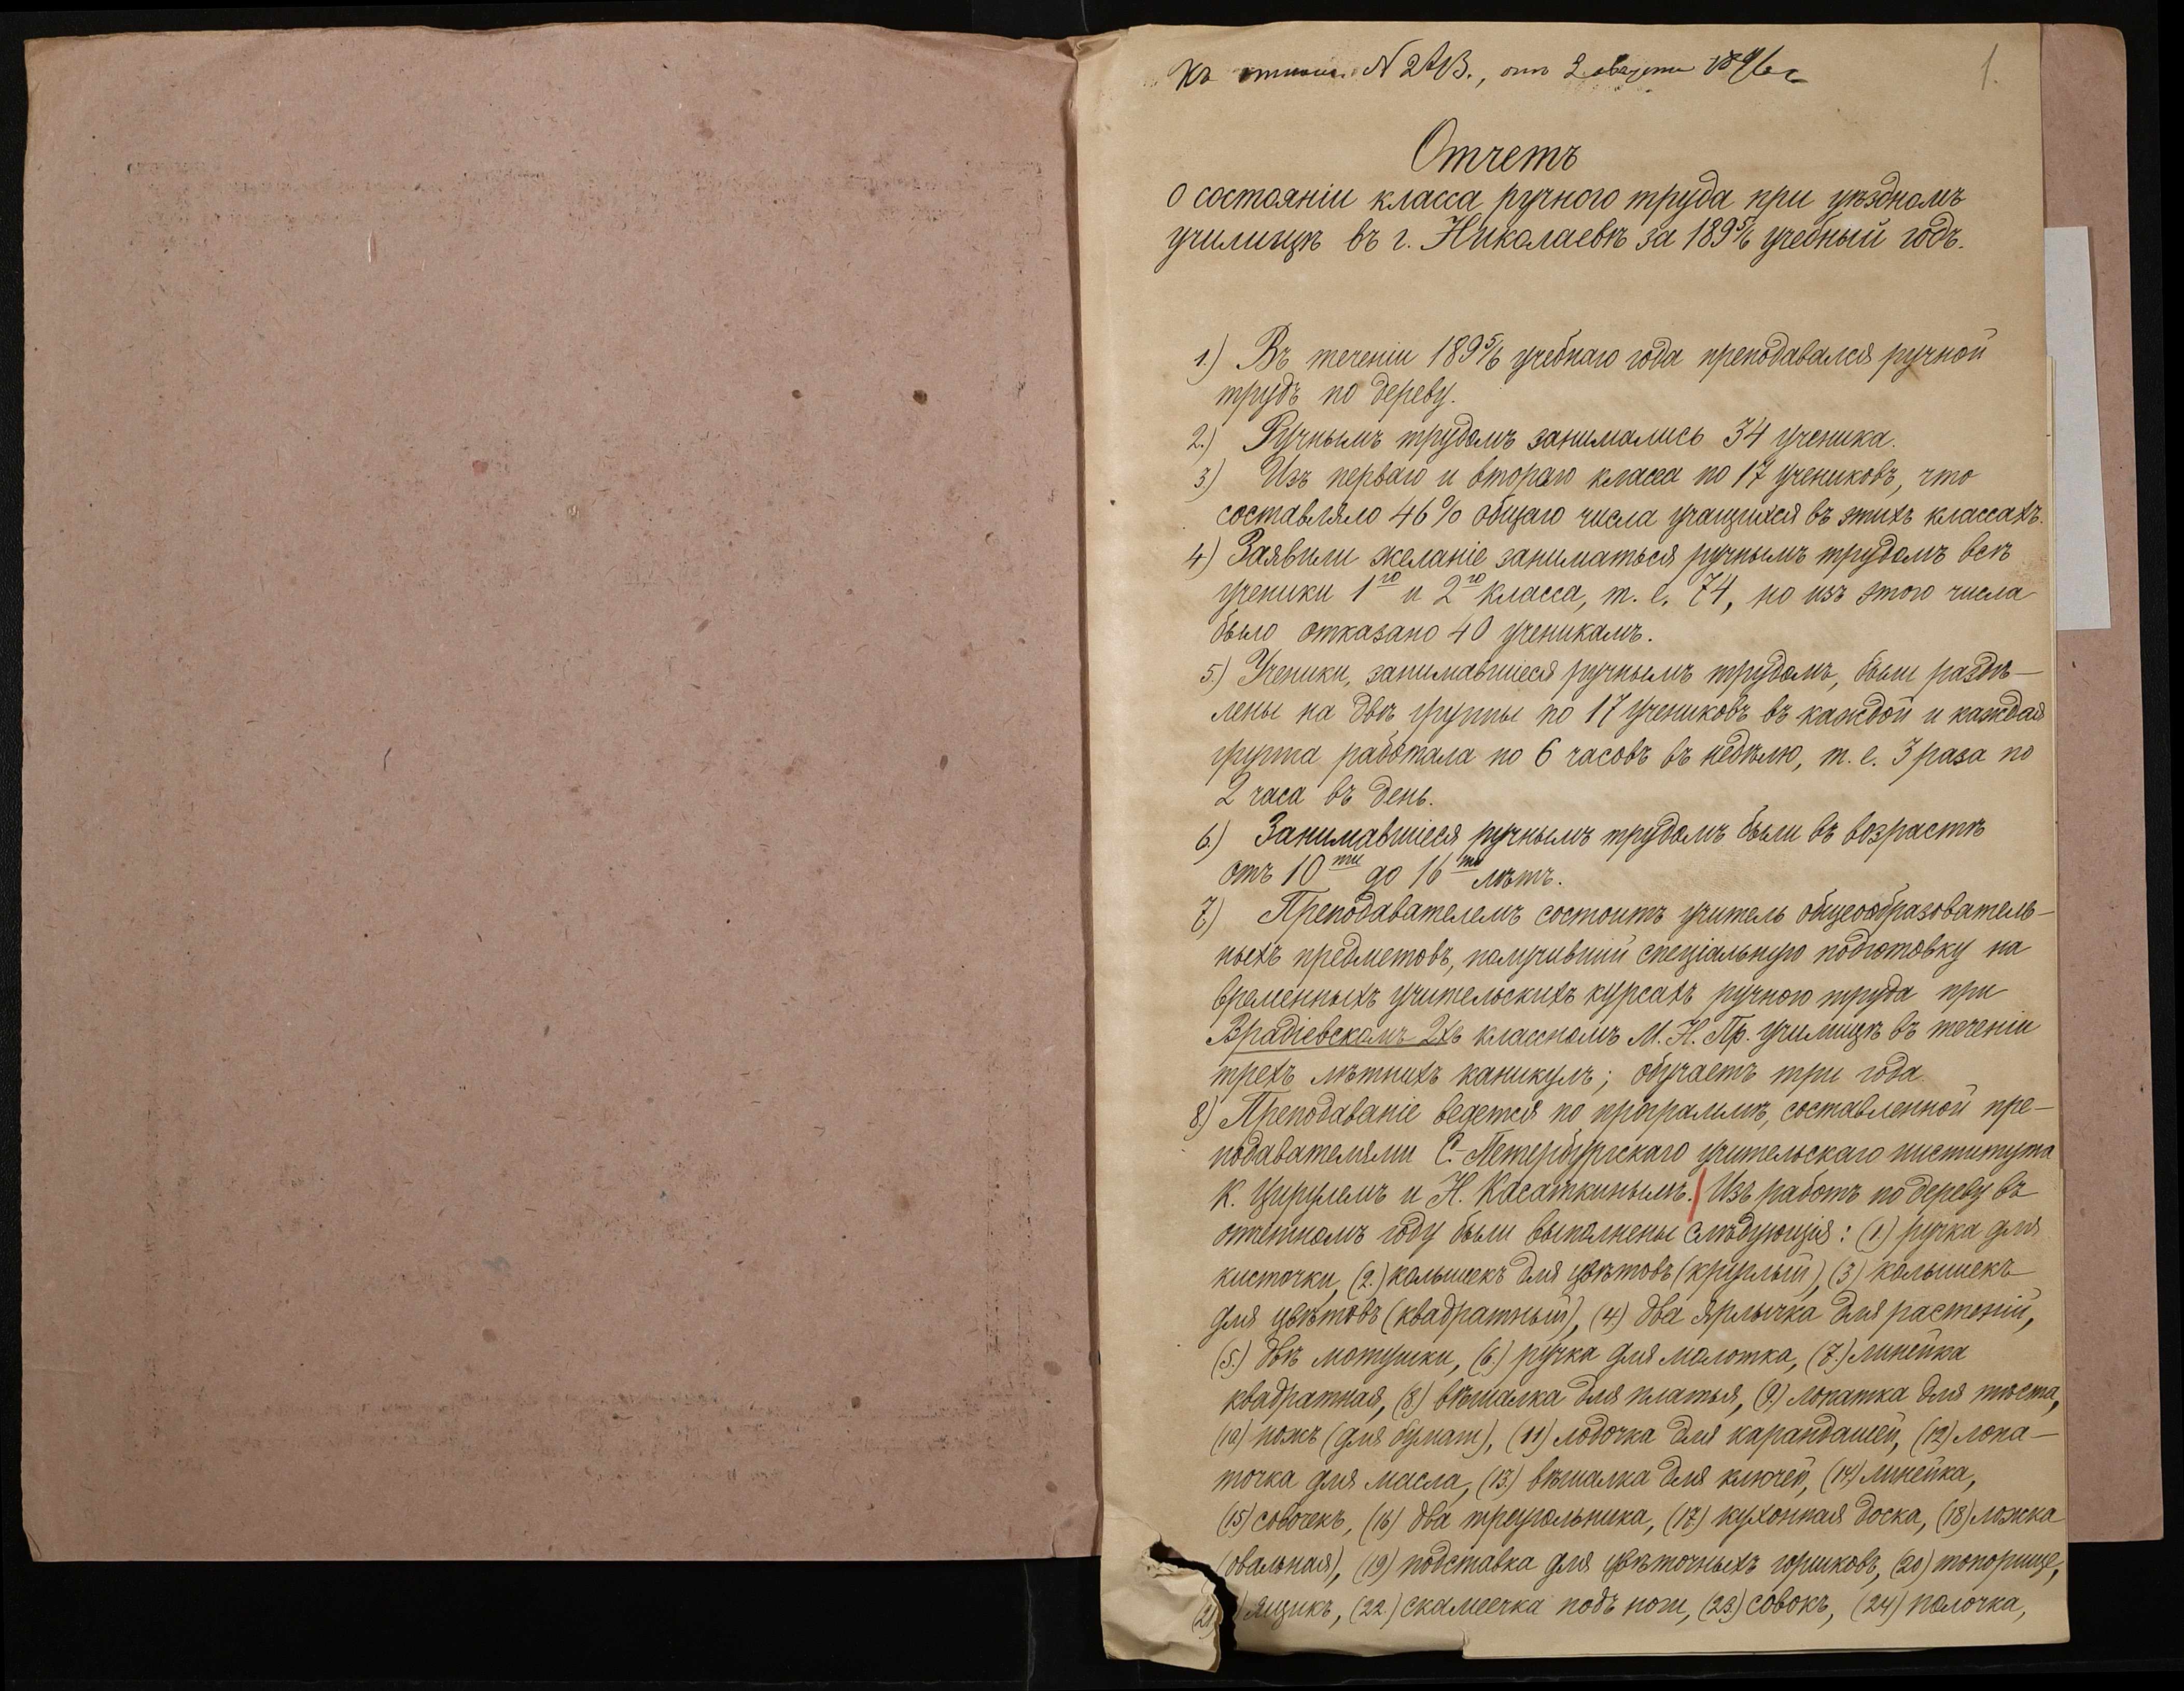 Къ № 2613., отъ 2 августа 1896 г
1.
Отчетъ
о состояніи класса ручного труда при уѣздномъ
училищѣ въ г. Николаевѣ за 1895/6 учебный годъ.
1.) Въ теченіи 1895/6 учебнаго года преподавался ручной
трудъ по дереву.
2.) Ручнымъ трудомъ занимались 34 ученика.
3) Изъ перваго и второго класса по 17 учениковъ, что
составляло 46% общаго числа учащихся въ этихъ классахъ.
4) Заявили желаніе заниматься ручнымъ трудомъ всѣ
ученики 1го и 2го класса, т. е. 74, но изъ этого числа
было отказано 40 ученикамъ.
5.) Ученики, занимавшіеся ручнымъ трудомъ, были раздѣ-
лены на двѣ группы по 17 учениковъ въ каждой и каждая
группа работала по 6 часовъ въ недѣлю, т. е. 3 раза по
2 часа въ день.
6.) Занимавшіеся ручнымъ трудомъ были въ возрастѣ
отъ 10ти до 16ти лѣтъ.
7) Преподавателемъ состоитъ учитель общеобразователь-
ныхъ предметовъ, получившій спеціальную подготовку на
временныхъ учительскихъ курсахъ ручного труда при
Врадіевскомъ 2хъ классномъ М. Н. Пр. училищѣ въ теченіи
трехъ лѣтнихъ каникулъ; обучаетъ три года.
8.) Преподаваніе ведется по программѣ, составленной пре-
подавателями С.-Петербургскаго учительскаго института
К. Цирулемъ и Н. Касаткинымъ. Изъ работъ по дереву въ
отчетномъ году были выполнены слѣдующія: (1.) ручка для
кисточки, (2.) колышекъ для цвѣтовъ (круглый), (3) колышекъ
для цвѣтовъ (квадратный), (4) два ярлычка для растеній,
(5.) двѣ мотушки, (6.) ручка для молотка, (7.) линейка
квадратная, (8) вѣшалка для платья, (9.) лопатка для тѣста,
(10) ножъ (для бумаги), (11) лодочка для карандашей, (12) лопа-
точка для масла, (13.) вѣшалка для ключей, (14) линейка,
(15) совочекъ, (16) два треугольника, (17) кухонная доска, (18) ложка
(овальная), (19) подставка для цвѣточныхъ горшковъ, (20) топорище,
(21) ящикъ, (22.) скамеечка подъ ноги, (23.) совокъ, (24) полочка,